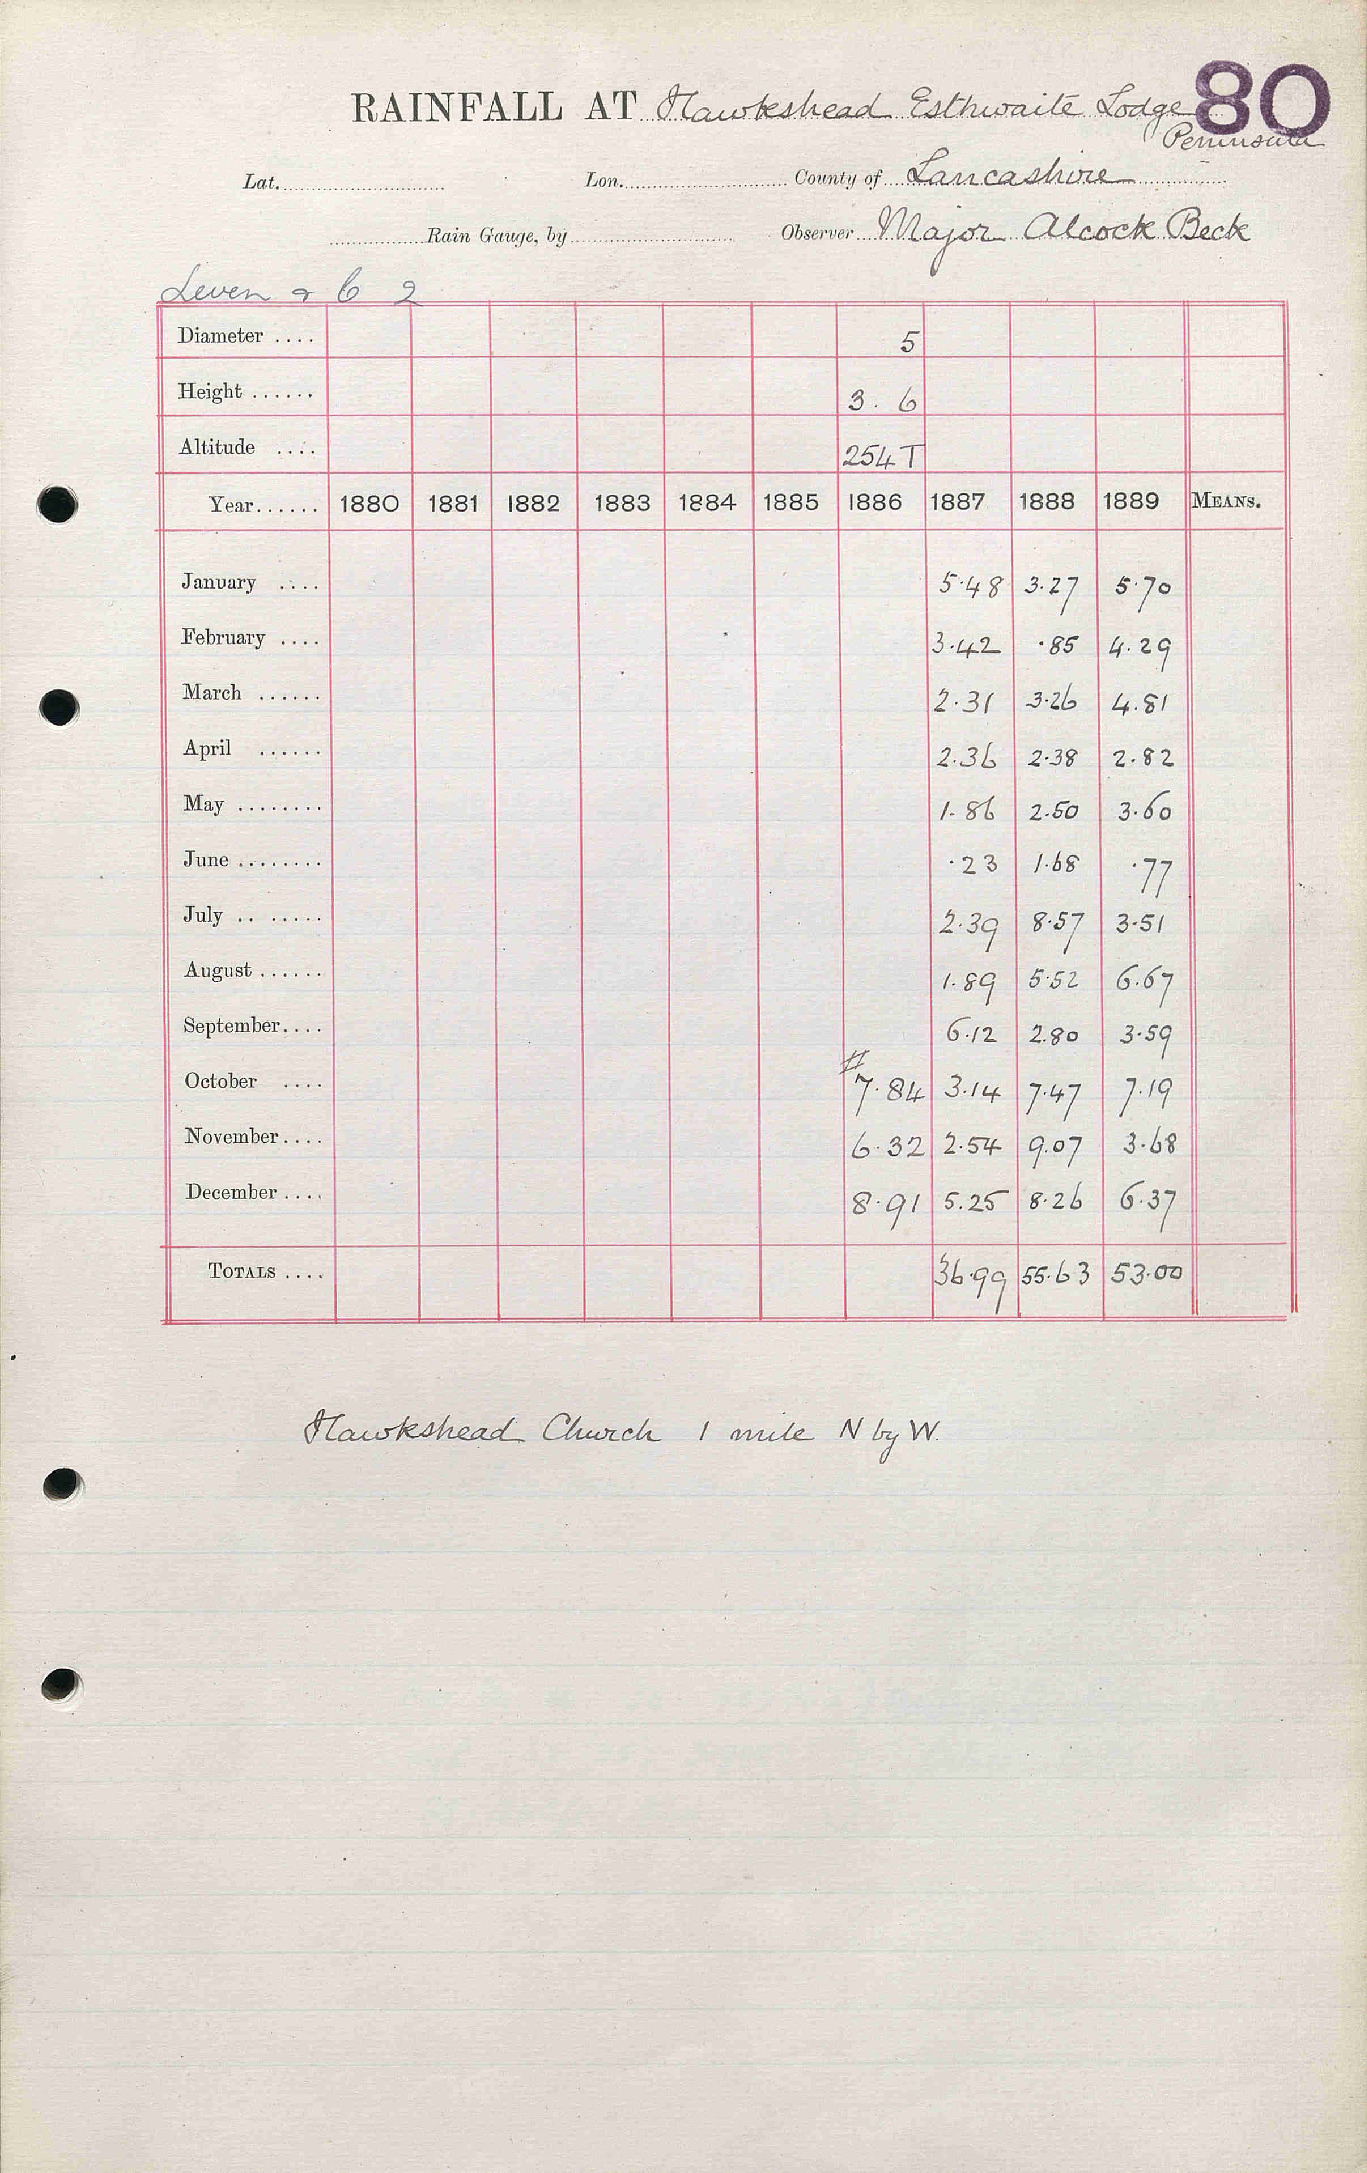 80
RAINFALL AT Hawkshead Esthwaite Lodge
Peninsula
Lat. Lon. County of Lancashire
Rain Gauge, by Observer Major Alcock Beck
Leven & C 2
Diameter .... 5
Height ...... 3. 6
Altitude .... 254 T
Year...... 1880 1881 1882 1883 1884 1885 1886 1887 1888 1889 MEANS.
January .... 5.48 3.27 5.70
February .... 3.42 .85 4.29
March ...... 2.31 3.26 4.81
April ...... 2.36 2.38 2.82
May ........ 1.86 2.50 3.60
June ........ .23 1.68 .77
July .. ..... 2.39 8.57 3.51
August ...... 1.89 5.52 6.67
September.... 6.12 2.80 3.59
October .... # 7.84 3.14 7.47 7.19
November.... 6.32 2.54 9.07 3.68
December .... 8.91 5.25 8.26 6.37
TOTALS .... 36.99 55.63 53.00
Hawkshead Church 1 mile N by W.